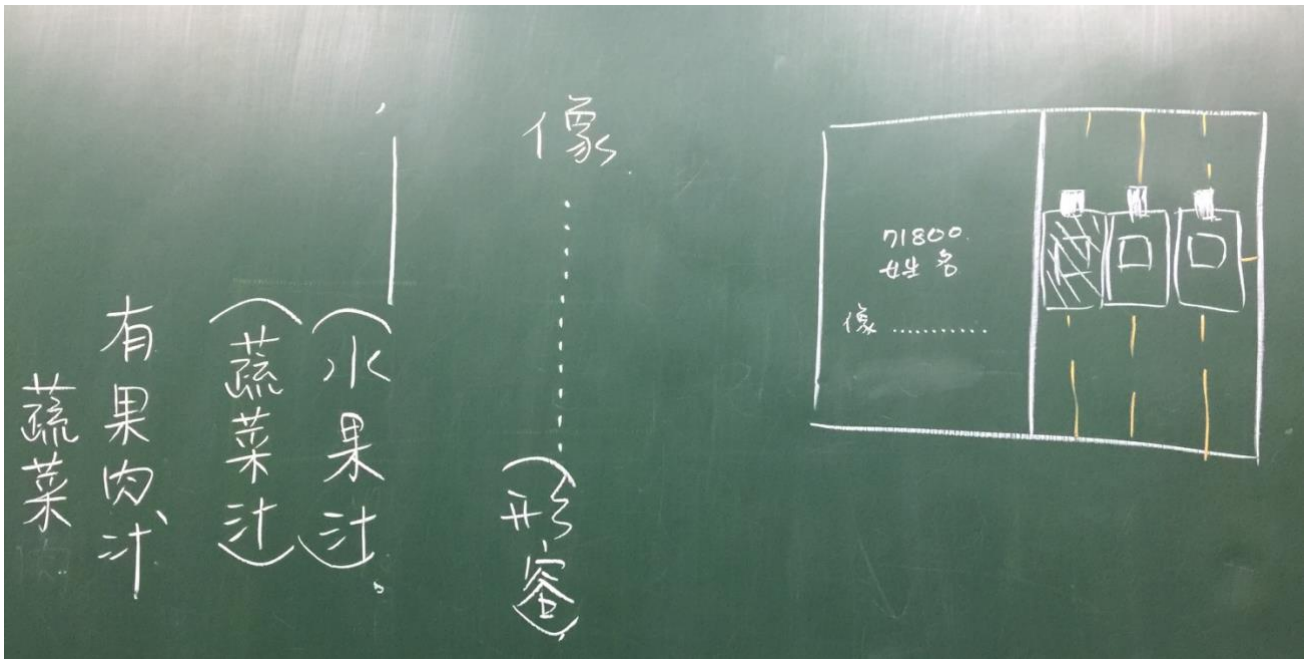 71800
姓名
像...........
像...........(形容)
，｜(水果汁)。
(蔬菜汁)
有果肉、汁
蔬菜